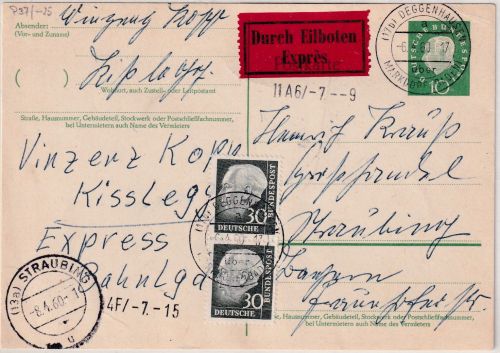 P37/-25
Absender:
(Vor- und Zuname)
Vinzenz Kopp
Durch Eilboten
Exprès
Postkarte
II A6/-7.--9
(17b) DEGGENHAUSEN
a
über
DEUTSCHE BUNDESPOST
10
( )
Kißlegg
Wohnort, auch Zustell- oder Leitpostamt
Straße, Hausnummer, Gebäudeteil, Stockwerk oder Postschließfachnummer,
bei Untermietern auch Name des Vermieters
Vinzenz Kopp
Kisslegg
Express
Bahnlgd
4F/-7.-15
Heinrich Krauß
Großhandel
Straubing
Bayern
Fraunhofer str.
30
DEUTSCHE BUNDESPOST
30
DEUTSCHE BUNDESPOST
(13a) STRAUBING
-8.4.60.-1
u
Straße, Hausnummer, Gebäudeteil, Stockwerk oder Postschließfachnummer,
bei Untermietern auch Name des Vermieters